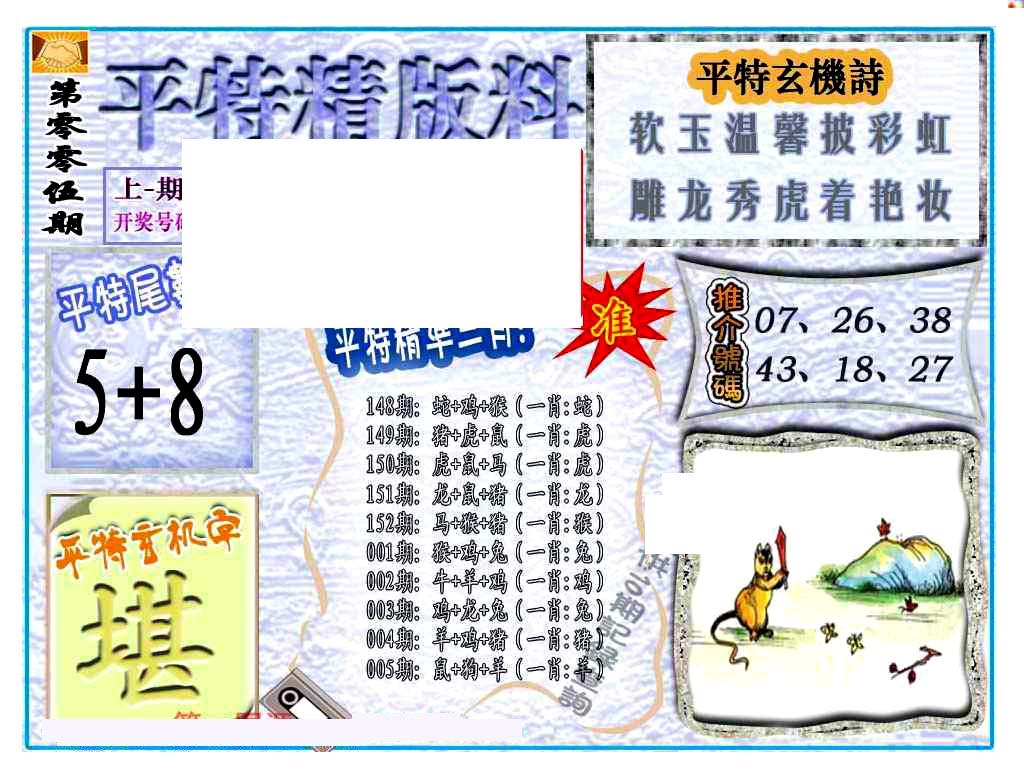 第零零伍期
平特精版料
上-期
开奖号
平特玄機詩
软玉温馨披彩虹
雕龙秀虎着艳妆
平特尾
5+8
平特精准一肖:
准
推介號碼
07、26、38
43、18、27
148期: 蛇+鸡+猴(一肖:蛇)
149期: 猪+虎+鼠(一肖:虎)
150期: 虎+鼠+马(一肖:虎)
151期: 龙+鼠+猪(一肖:龙)
152期: 马+猴+猪(一肖:猴)
001期: 猴+鸡+兔(一肖:兔)
002期: 牛+羊+鸡(一肖:鸡)
003期: 鸡+龙+兔(一肖:兔)
004期: 羊+鸡+猪(一肖:猪)
005期: 鼠+狗+羊(一肖:羊)
平特玄机字
堪